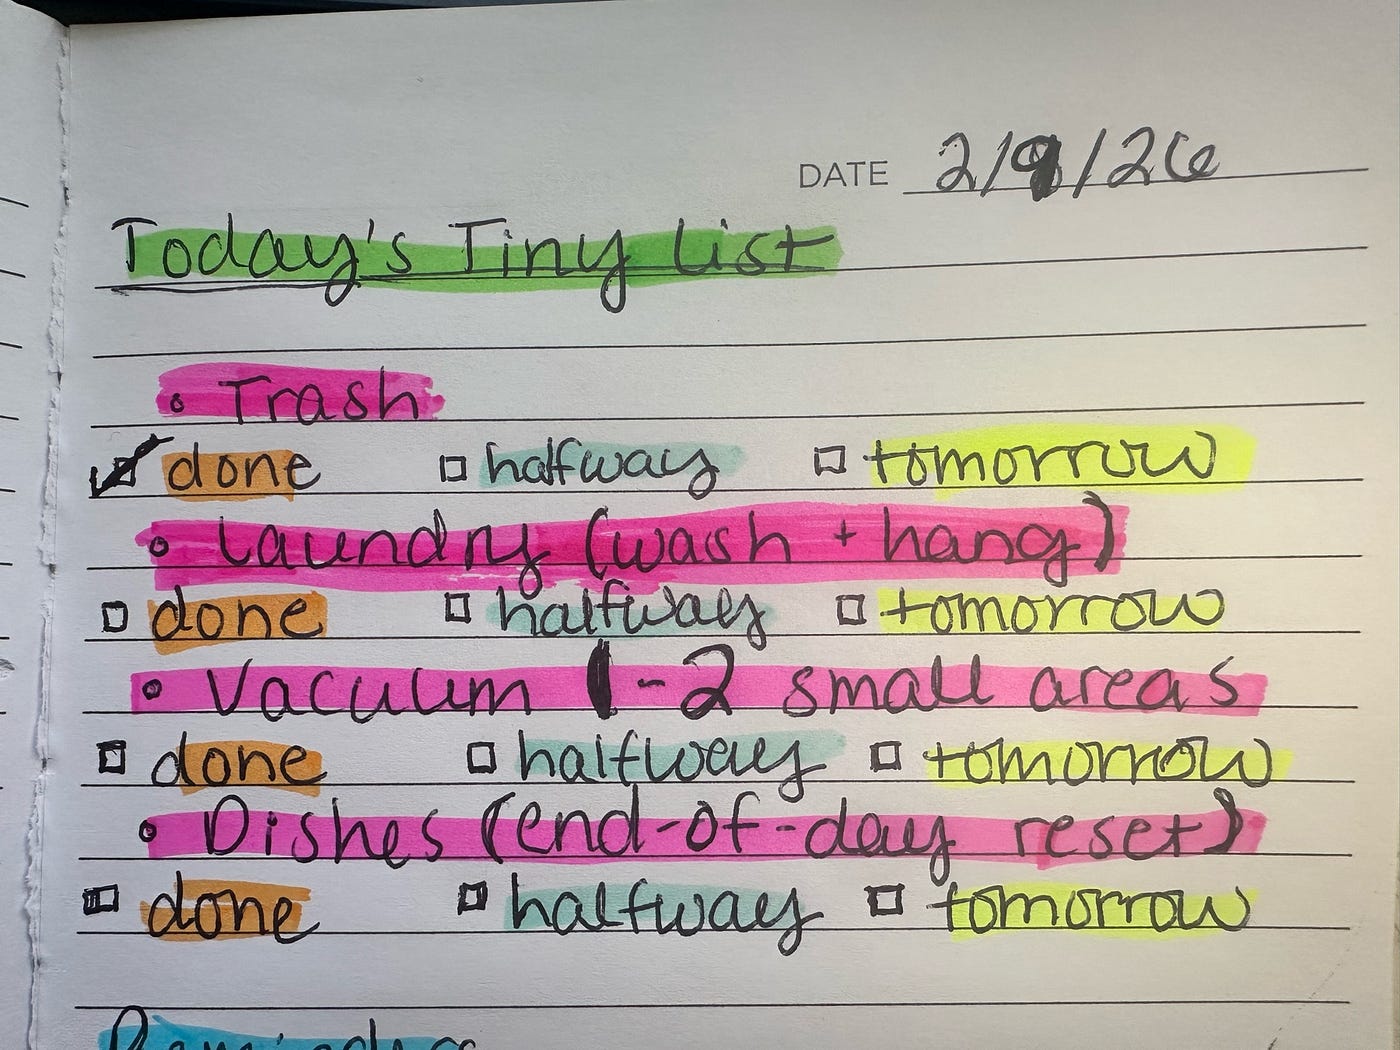 DATE 2/9/26
Today's Tiny List
• Trash
☑ done ☐ halfway ☐ tomorrow
• Laundry (wash + hang)
☐ done ☐ halfway ☐ tomorrow
• Vacuum 1-2 small areas
☐ done ☐ halfway ☐ tomorrow
• Dishes (end-of-day reset)
☐ done ☐ halfway ☐ tomorrow